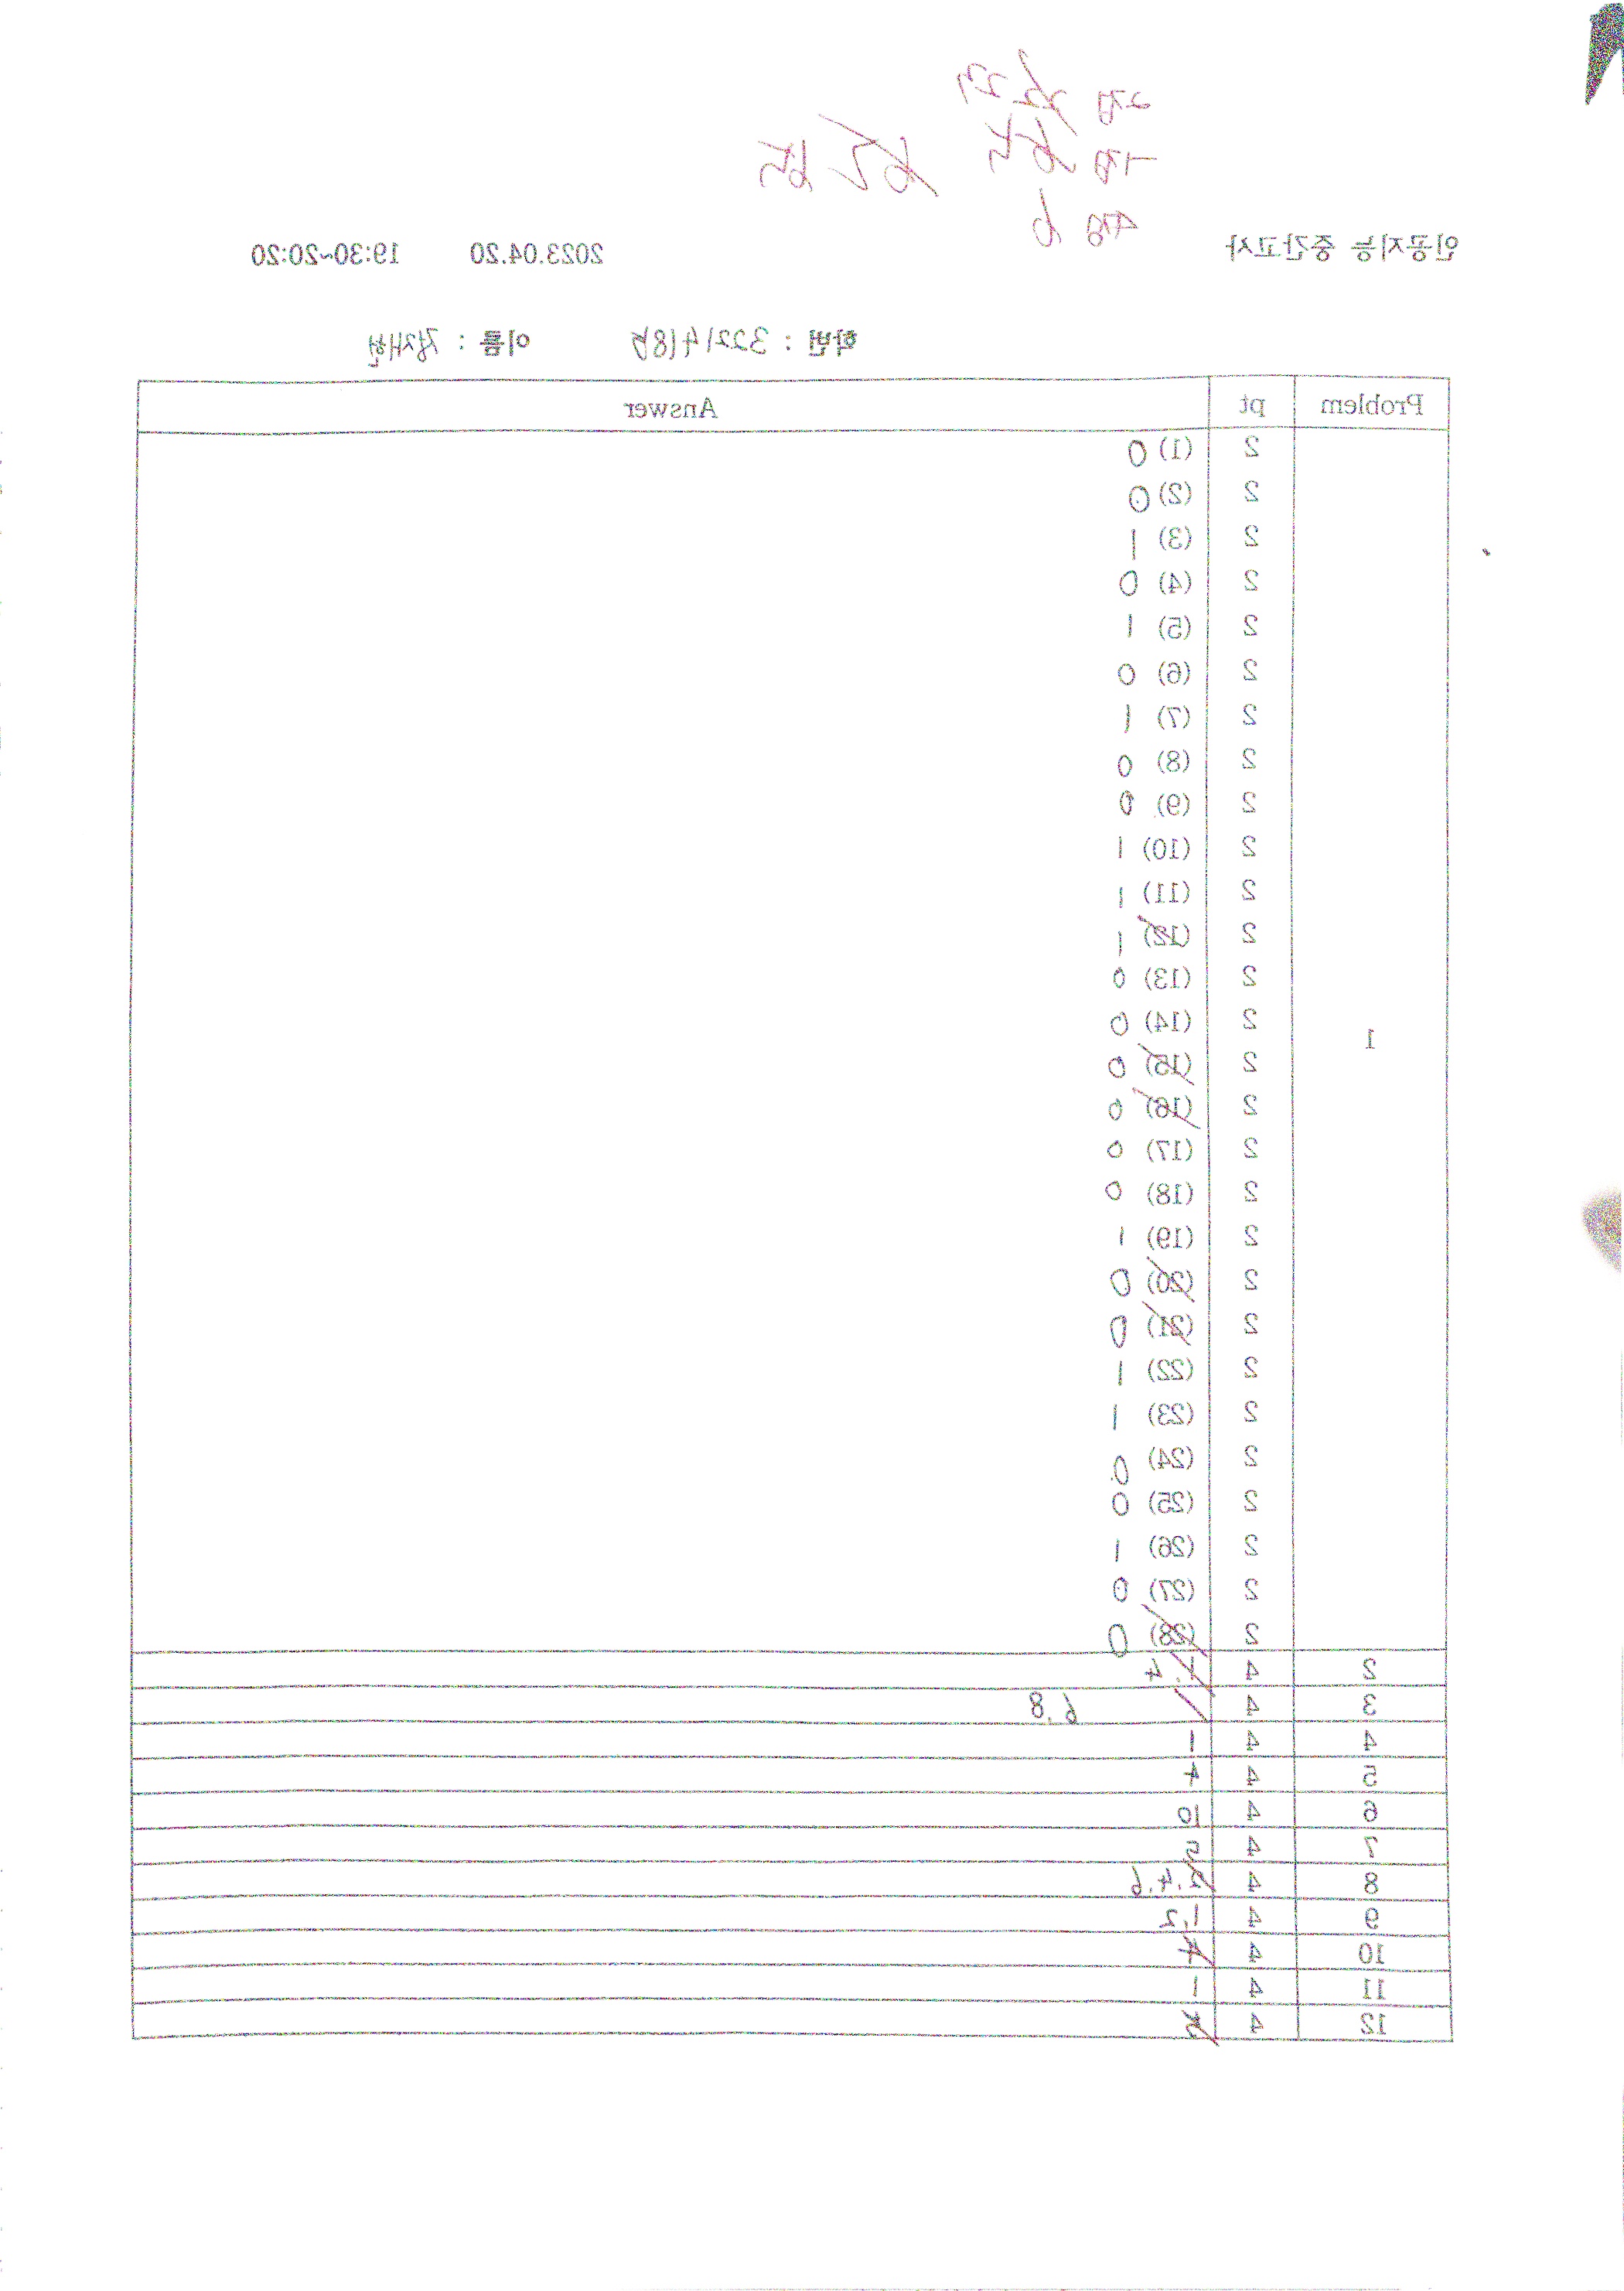 인공지능 중간고사 2023.04.20 19:30~20:20
학번 : 32214185 이름 :
Problem pt Answer
1
2 (1) 0
2 (2) 0
2 (3) 1
2 (4) 0
2 (5) 1
2 (6) 0
2 (7) 1
2 (8) 0
2 (9) 0
2 (10) 1
2 (11) 1
2 (12) 1
2 (13) 0
2 (14) 0
2 (15) 0
2 (16) 0
2 (17) 0
2 (18) 0
2 (19) 1
2 (20) 0
2 (21) 0
2 (22) 1
2 (23) 1
2 (24) 0
2 (25) 0
2 (26) 1
2 (27) 0
2 (28) 0
2 4 4
3 4 6.8
4 4 1
5 4 4
6 4 10
7 4 5
8 4 2.4.6
9 4 1,2
10 4 4
11 4 1
12 4